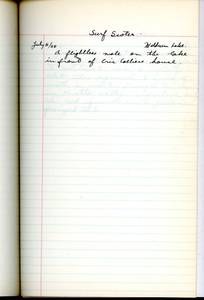 Surf Scoter.
July 6/60 Welburn Lake.
A flightless male on the lake
in front of Eric Colliers house.